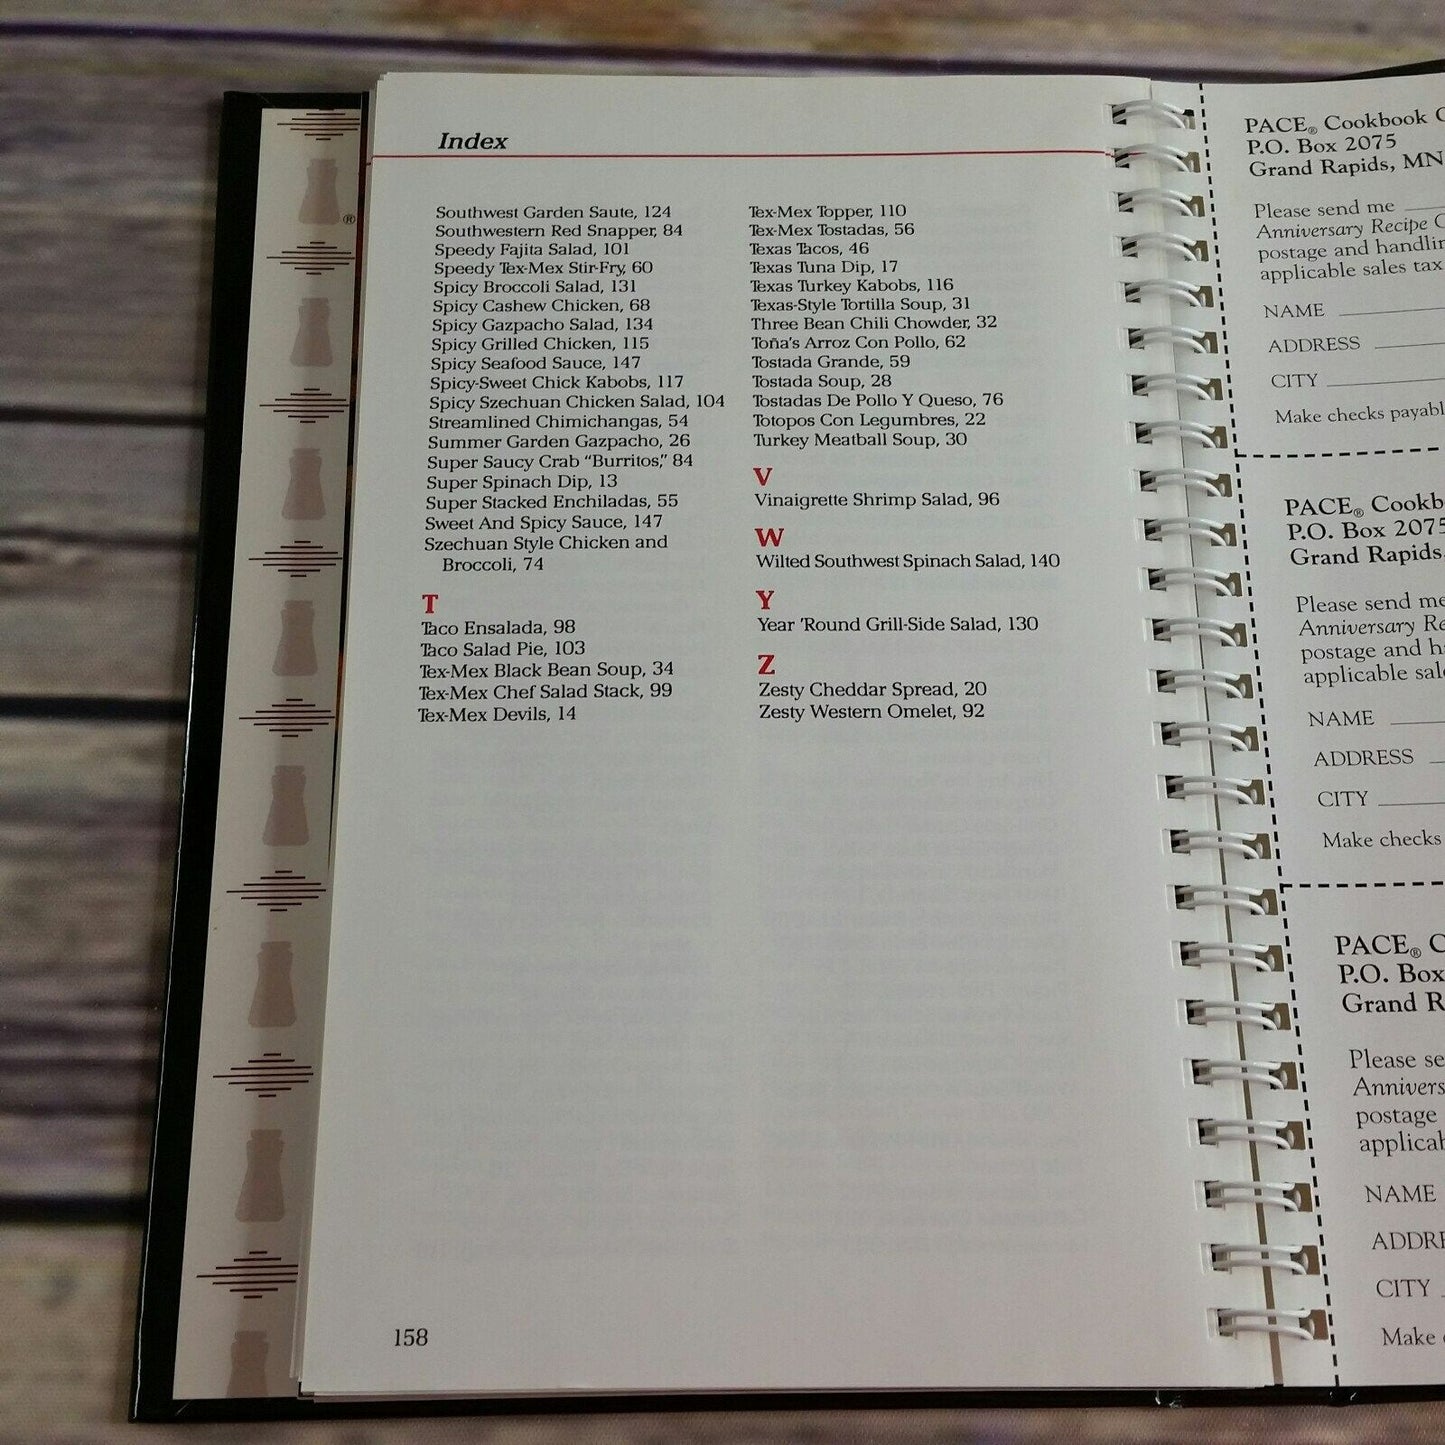 Index
Southwest Garden Saute, 124
Southwestern Red Snapper, 84
Speedy Fajita Salad, 101
Speedy Tex-Mex Stir-Fry, 60
Spicy Broccoli Salad, 131
Spicy Cashew Chicken, 68
Spicy Gazpacho Salad, 134
Spicy Grilled Chicken, 115
Spicy Seafood Sauce, 147
Spicy-Sweet Chick Kabobs, 117
Spicy Szechuan Chicken Salad, 104
Streamlined Chimichangas, 54
Summer Garden Gazpacho, 26
Super Saucy Crab “Burritos,” 84
Super Spinach Dip, 13
Super Stacked Enchiladas, 55
Sweet And Spicy Sauce, 147
Szechuan Style Chicken and
Broccoli, 74
T
Taco Ensalada, 98
Taco Salad Pie, 103
Tex-Mex Black Bean Soup, 34
Tex-Mex Chef Salad Stack, 99
Tex-Mex Devils, 14
Tex-Mex Topper, 110
Tex-Mex Tostadas, 56
Texas Tacos, 46
Texas Tuna Dip, 17
Texas Turkey Kabobs, 116
Texas-Style Tortilla Soup, 31
Three Bean Chili Chowder, 32
Toña's Arroz Con Pollo, 62
Tostada Grande, 59
Tostada Soup, 28
Tostadas De Pollo Y Queso, 76
Totopos Con Legumbres, 22
Turkey Meatball Soup, 30
V
Vinaigrette Shrimp Salad, 96
W
Wilted Southwest Spinach Salad, 140
Y
Year 'Round Grill-Side Salad, 130
Z
Zesty Cheddar Spread, 20
Zesty Western Omelet, 92
158
®
PACE® Cookbook
P.O. Box 2075
Grand Rapids, MN
Please send me
Anniversary Recipe
postage and
applicable sales tax
NAME
ADDRESS
CITY
Make checks
PACE®
P.O. Box 2075
Grand Rapids
Please send me
Anniversary
postage and
applicable
NAME
ADDRESS
CITY
Make checks
PACE®
P.O. Box
Grand
Please
postage
NAME
CITY
Make